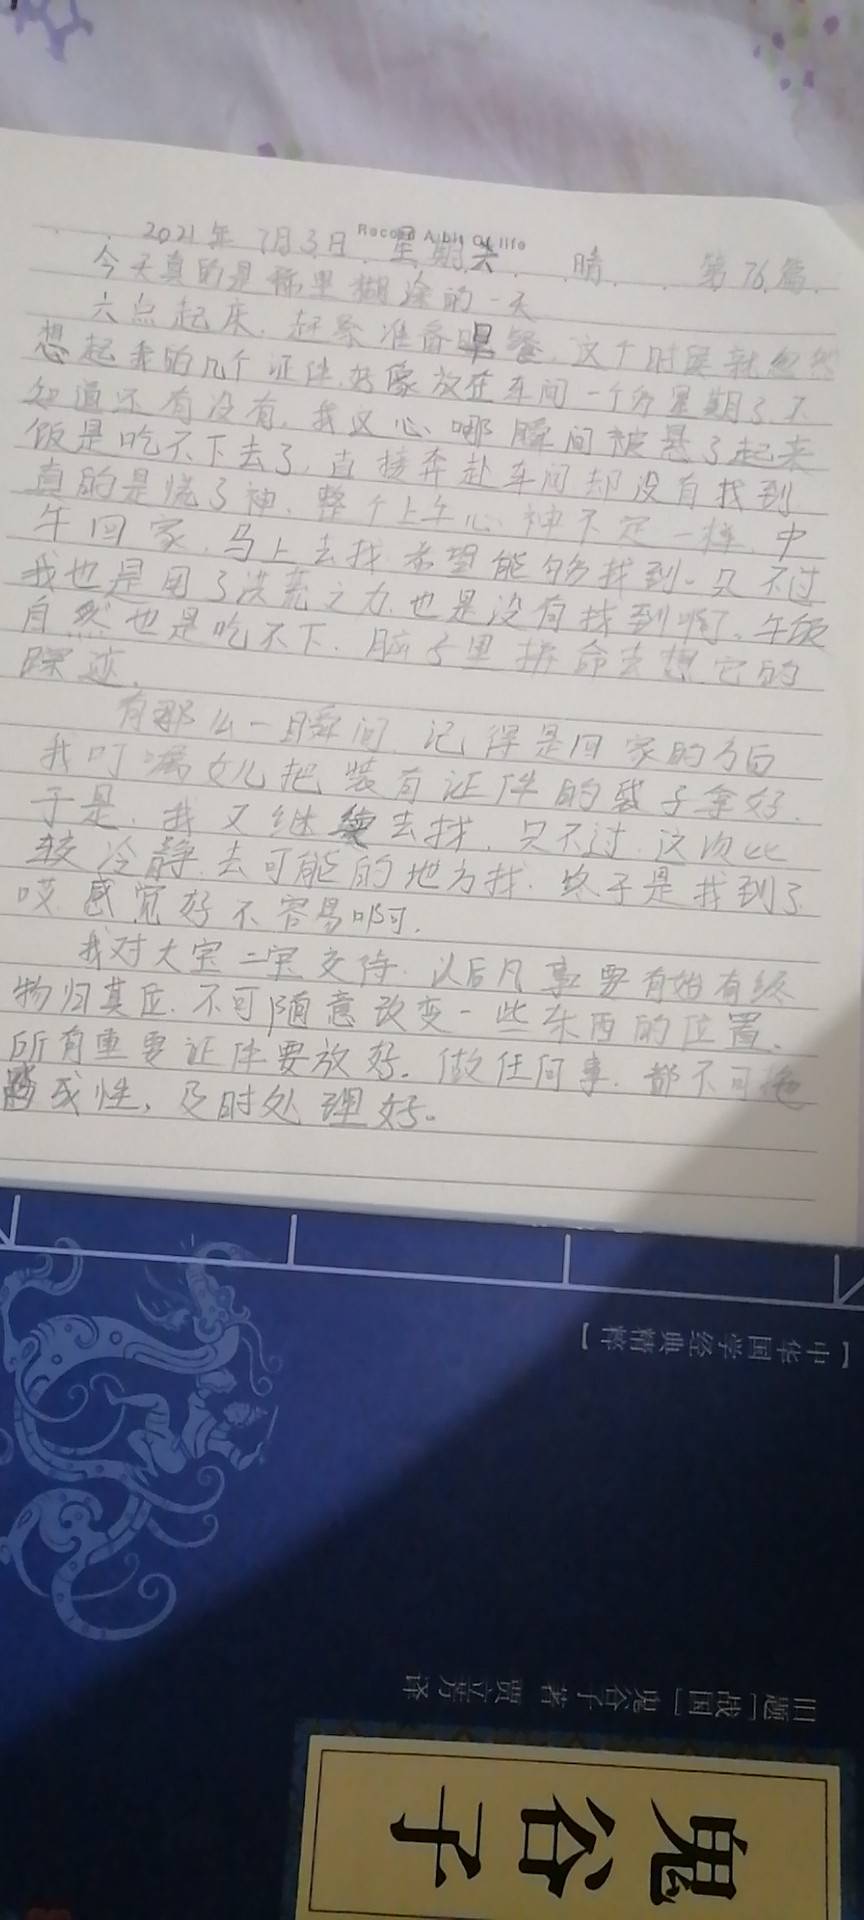 Record A bit Of life
2021年 7月3日 星期六 晴 第76篇
今天真的是稀里糊涂的一天
六点起床,赶紧准备早餐,这个时候就忽然
想起我的几个证件,好像放在车间一个多星期了,不
知道还有没有,我这心哪瞬间被悬了起来
饭是吃不下去了,直接奔赴车间却没有找到
真的是慌了神,整个上午心神不定一样,中
午回家,马上去找,希望能够找到。只不过
我也是用了洪荒之力,也是没有找到啊。午饭
自然也是吃不下,脑子里拼命去想它的
踪迹,
有那么一瞬间,记得是回家的方向
我叮嘱女儿把装有证件的袋子拿好,
于是,我又继续去找,只不过,这次比
较冷静,去可能的地方找,终于是找到了
哎,感觉好不容易啊,
我对大宝二宝交待,以后凡事要有始有终
物归其位,不可随意改变一些东西的位置,
所有重要证件要放好。做任何事,都不可拖
成性,及时处理好。
【中华国学经典精粹】
旧题[战国]鬼谷子 著 贾立芳 译
鬼谷子